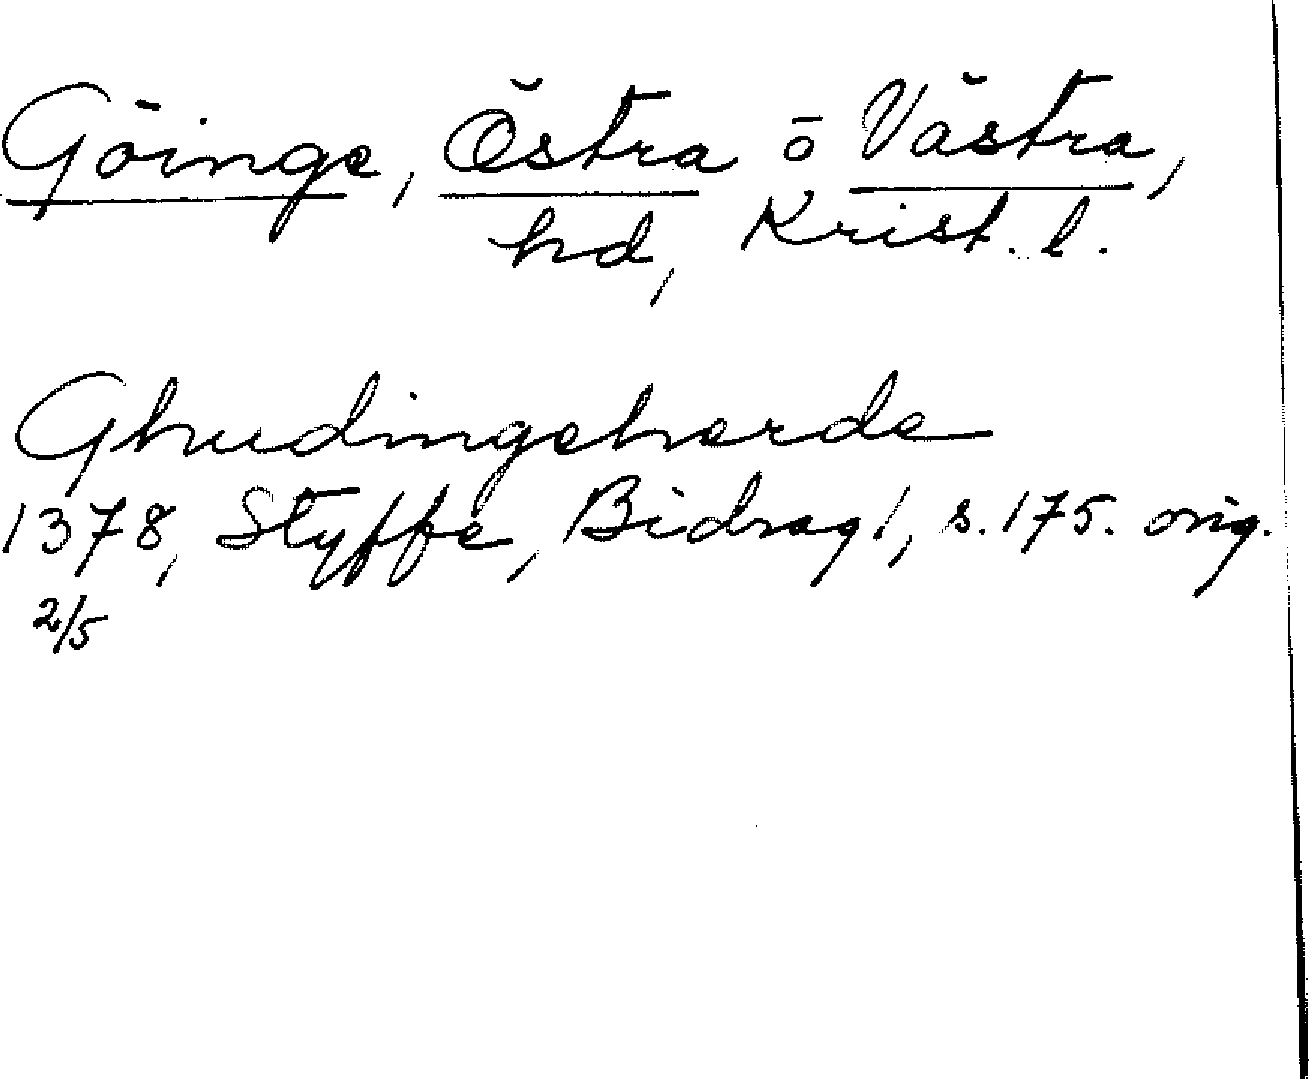 Göinge, Östra ö Västra,
hd, Krist. l.
Ghudingeherde
1378, Styffe, Bidrag 1, s. 175. orig.
2/5